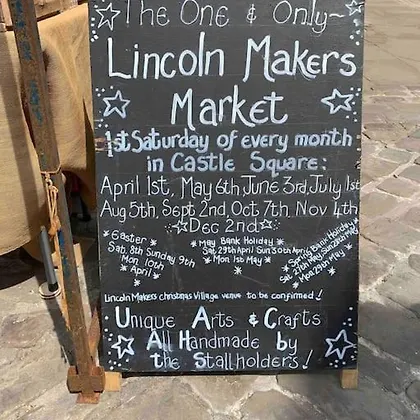 The One & Only~
Lincoln Makers
Market
1st Saturday of every month
in Castle Square:
April 1st, May 6th, June 3rd, July 1st
Aug 5th, Sept 2nd, Oct 7th, Nov 4th
Dec 2nd
Easter
Sat. 8th Sunday 9th
Mon 10th
April
May Bank Holiday
Sat 29th April Sun 30th April
Mon 1st May
Spring Bank Holiday
Sat 27th May Sun 28th May
Mon 29th May
Lincoln Makers christmas Village venue to be confirmed!
Unique Arts & Crafts
All Handmade by
the Stallholders!